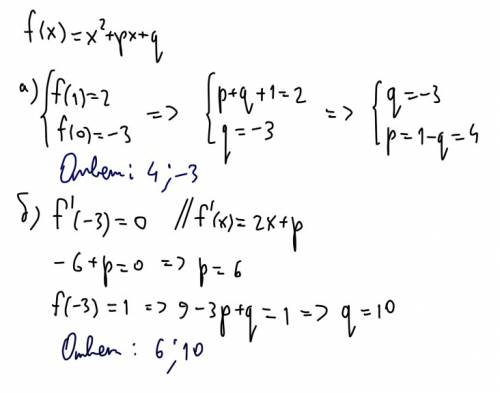 f(x)=x²+px+q
а) { f(1)=2 => { p+q+1=2 => { q=-3
f(0)=-3 q=-3 p=1-q=4
Ответ: 4;-3
б) f'(-3)=0 //f'(x)=2x+p
-6+p=0 => p=6
f(-3)=1 => 9-3p+q=1 => q=10
Ответ: 6;10